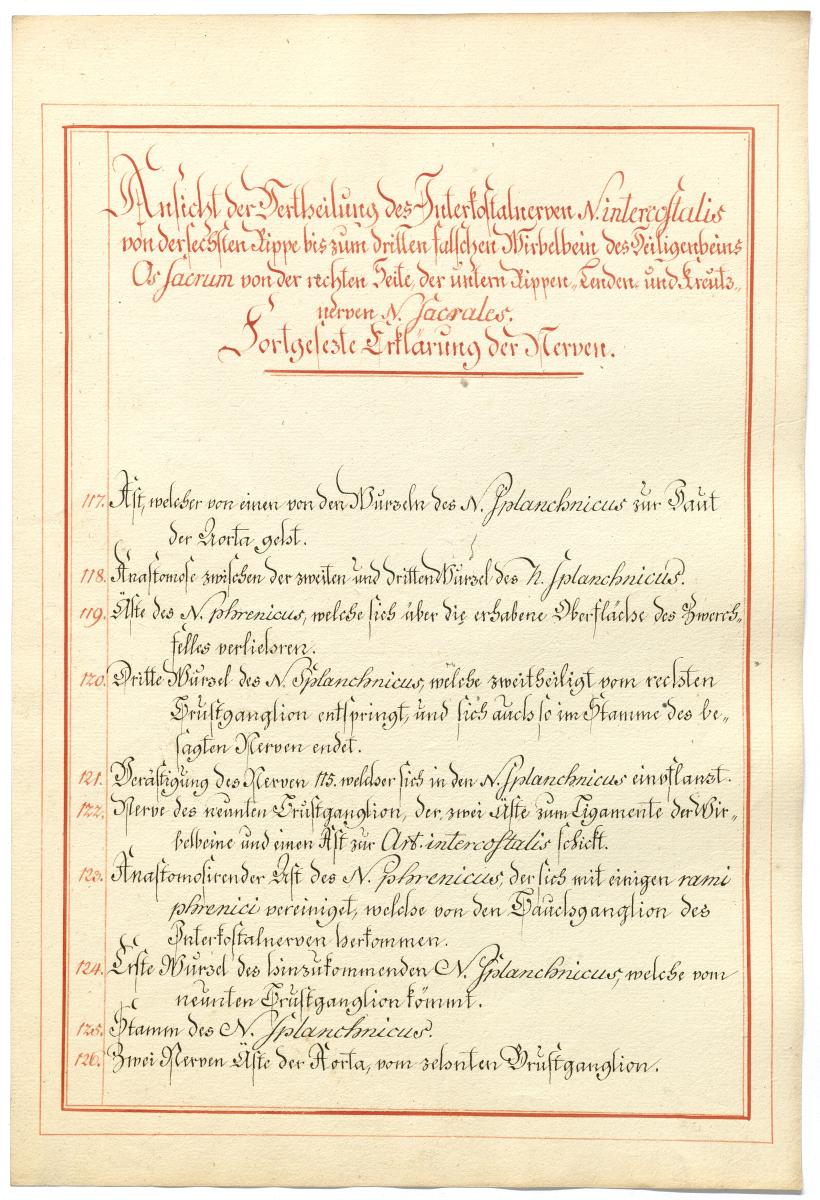 Ansicht der Vertheilung des Interkostalnerven N. intercostalis
von der sechsten Rippe bis zum dritten falschen Wirbelbein des Heiligenbeins
Os sacrum von der rechten Seite, der untern Rippen- Lenden- und Kreutz-
nerven N. Sacrales.
Fortgesezte Erklärung der Nerven.
117. Ast, welcher von einen von den Wurzeln des N. Splanchnicus zur Haut
der Aorta geht.
118. Anastomose zwischen der zweiten und dritten Wurzel des N. Splanchnicus.
119. Äste des N. phrenicus, welche sich über die erhabene Oberfläche des Zwerch-
felles verliehren.
120. Dritte Wurzel des N. Splanchnicus, welche zweitheiligt vom rechten
Brustganglion entspringt, und sich auch so im Stamme des be-
sagten Nerven endet.
121. Verästigung des Nerven 115. welcher sich in den N. Splanchnicus einpflanzt.
122. Nerve des neunten Brustganglion, der, zwei Äste zum Ligamente der Wir-
belbeine und einen Ast zur Art. intercostalis schickt.
123. Anastomosirender Ast des N. phrenicus, der sich mit einigen rami
phrenici vereiniget, welche von den Bauchganglion des
Interkostalnerven herkommen.
124. Erste Wurzel des hinzukommenden N. Splanchnicus, welche vom
neunten Brustganglion kömmt.
125. Stamm des N. Splanchnicus.
126. Zwei Nerven Äste der Aorta, vom zehnten Brustganglion.